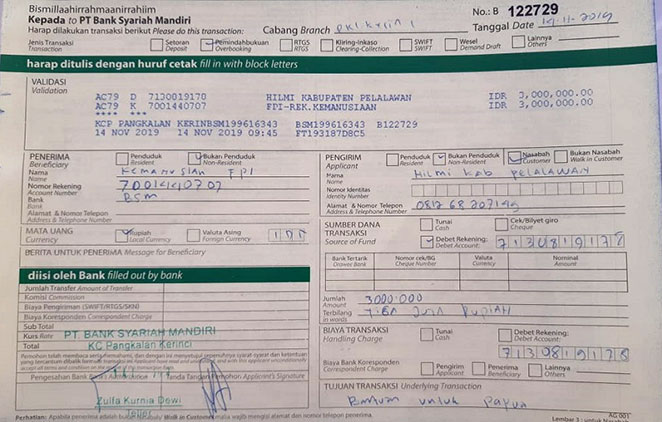 Bismillaahirrahmaanirrahiim
Kepada to PT Bank Syariah Mandiri
Harap dilakukan transaksi berikut Please do this transaction:
Cabang Branch
No.: B 122729
Tanggal Date 14-11-2019
Jenis Transaksi Transaction
Setoran Deposit
Pemindahbukuan Overbooking
RTGS RTGS
Kliring-Inkaso Clearing-Collection
SWIFT SWIFT
Wesel Demand Draft
Lainnya Others
harap ditulis dengan huruf cetak fill in with block letters
VALIDASI
Validation
AC79 D 7130819170 HILMI KABUPATEN PELALAWAN IDR 3,000,000.00
AC79 K 7001440707 FPI-REK.KEMANUSIAAN IDR 3,000,000.00
**** ***
KCP PANGKALAN KERINBSM199616343 BSM199616343 B122729
14 NOV 2019 14 NOV 2019 09:45 FT193187D8C5
PENERIMA
Beneficiary
Penduduk Resident
Bukan Penduduk Non-Resident
Nama
Name
Kemanusian FPI
Nomor Rekening
Account Number
7001440707
Bank
Bank
BSM
Alamat & Nomor Telepon
Address & Telephone Number
MATA UANG
Currency
Rupiah Local Currency
Valuta Asing Foreign Currency
IDR
BERITA UNTUK PENERIMA Message for Beneficiary
PENGIRIM
Applicant
Penduduk Resident
Bukan Penduduk Non-Resident
Nasabah Customer
Bukan Nasabah Walk in Customer
Nama
Name
Hilmi kab PELALAWAN
Nomor Identitas
Identity Number
Alamat & Nomor Telepon
Address & Telephone Number
SUMBER DANA TRANSAKSI
Source of Fund
Tunai Cash
Cek/Bilyet giro Cheque
Debet Rekening: Debet Account:
Bank Tertarik Drawee Bank
Nomor cek/BG Cheque Number
Valuta Currency
Nominal Amount
Jumlah
Amount
3000.000
Terbilang
in words
Tiga Juta Rupiah
BIAYA TRANSAKSI
Handling Charge
Tunai Cash
Debet Rekening: Debet Account:
Biaya Bank Koresponden
Correspondent Charge
Pengirim Applicant
Penerima Beneficiary
Lainnya Others
TUJUAN TRANSAKSI Underlying Transaction
Bantuan untuk Papua
diisi oleh Bank filled out by bank
Jumlah Transfer Amount of Transfer
Komisi Commission
Biaya Pengiriman (SWIFT/RTGS/SKN)
Biaya Koresponden Correspondent Charge
Sub Total
Kurs Rate
Total
PT. BANK SYARIAH MANDIRI
KC Pangkalan Kerinci
Zulfa Kurnia Dewi
Teller
AG 001